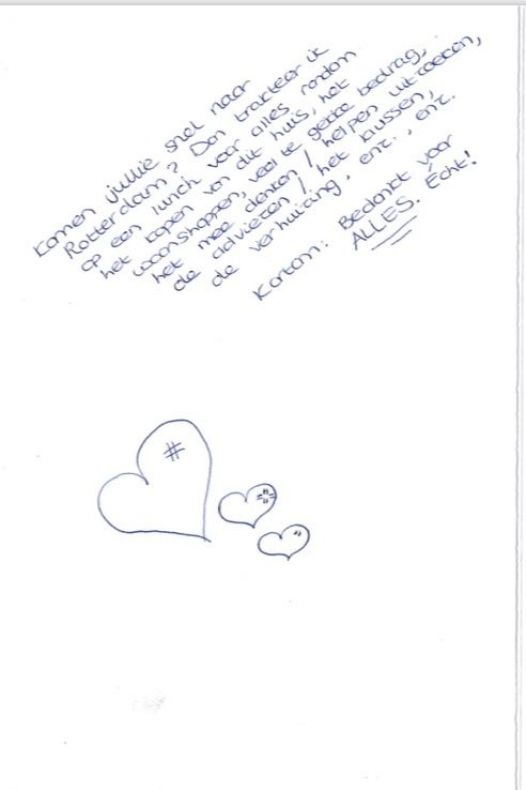 Komen jullie snel naar
Rotterdam? Dan trakteer ik
op een lunch voor alles rondom
het kopen van dit huis, het
woonshoppen, veel te gekke bedrag,
het mee denken / helpen uitzoeken,
de adviezen / het klussen,
de verhuizing, enz., enz.
Kortom: Bedankt voor
ALLES. Écht!
#